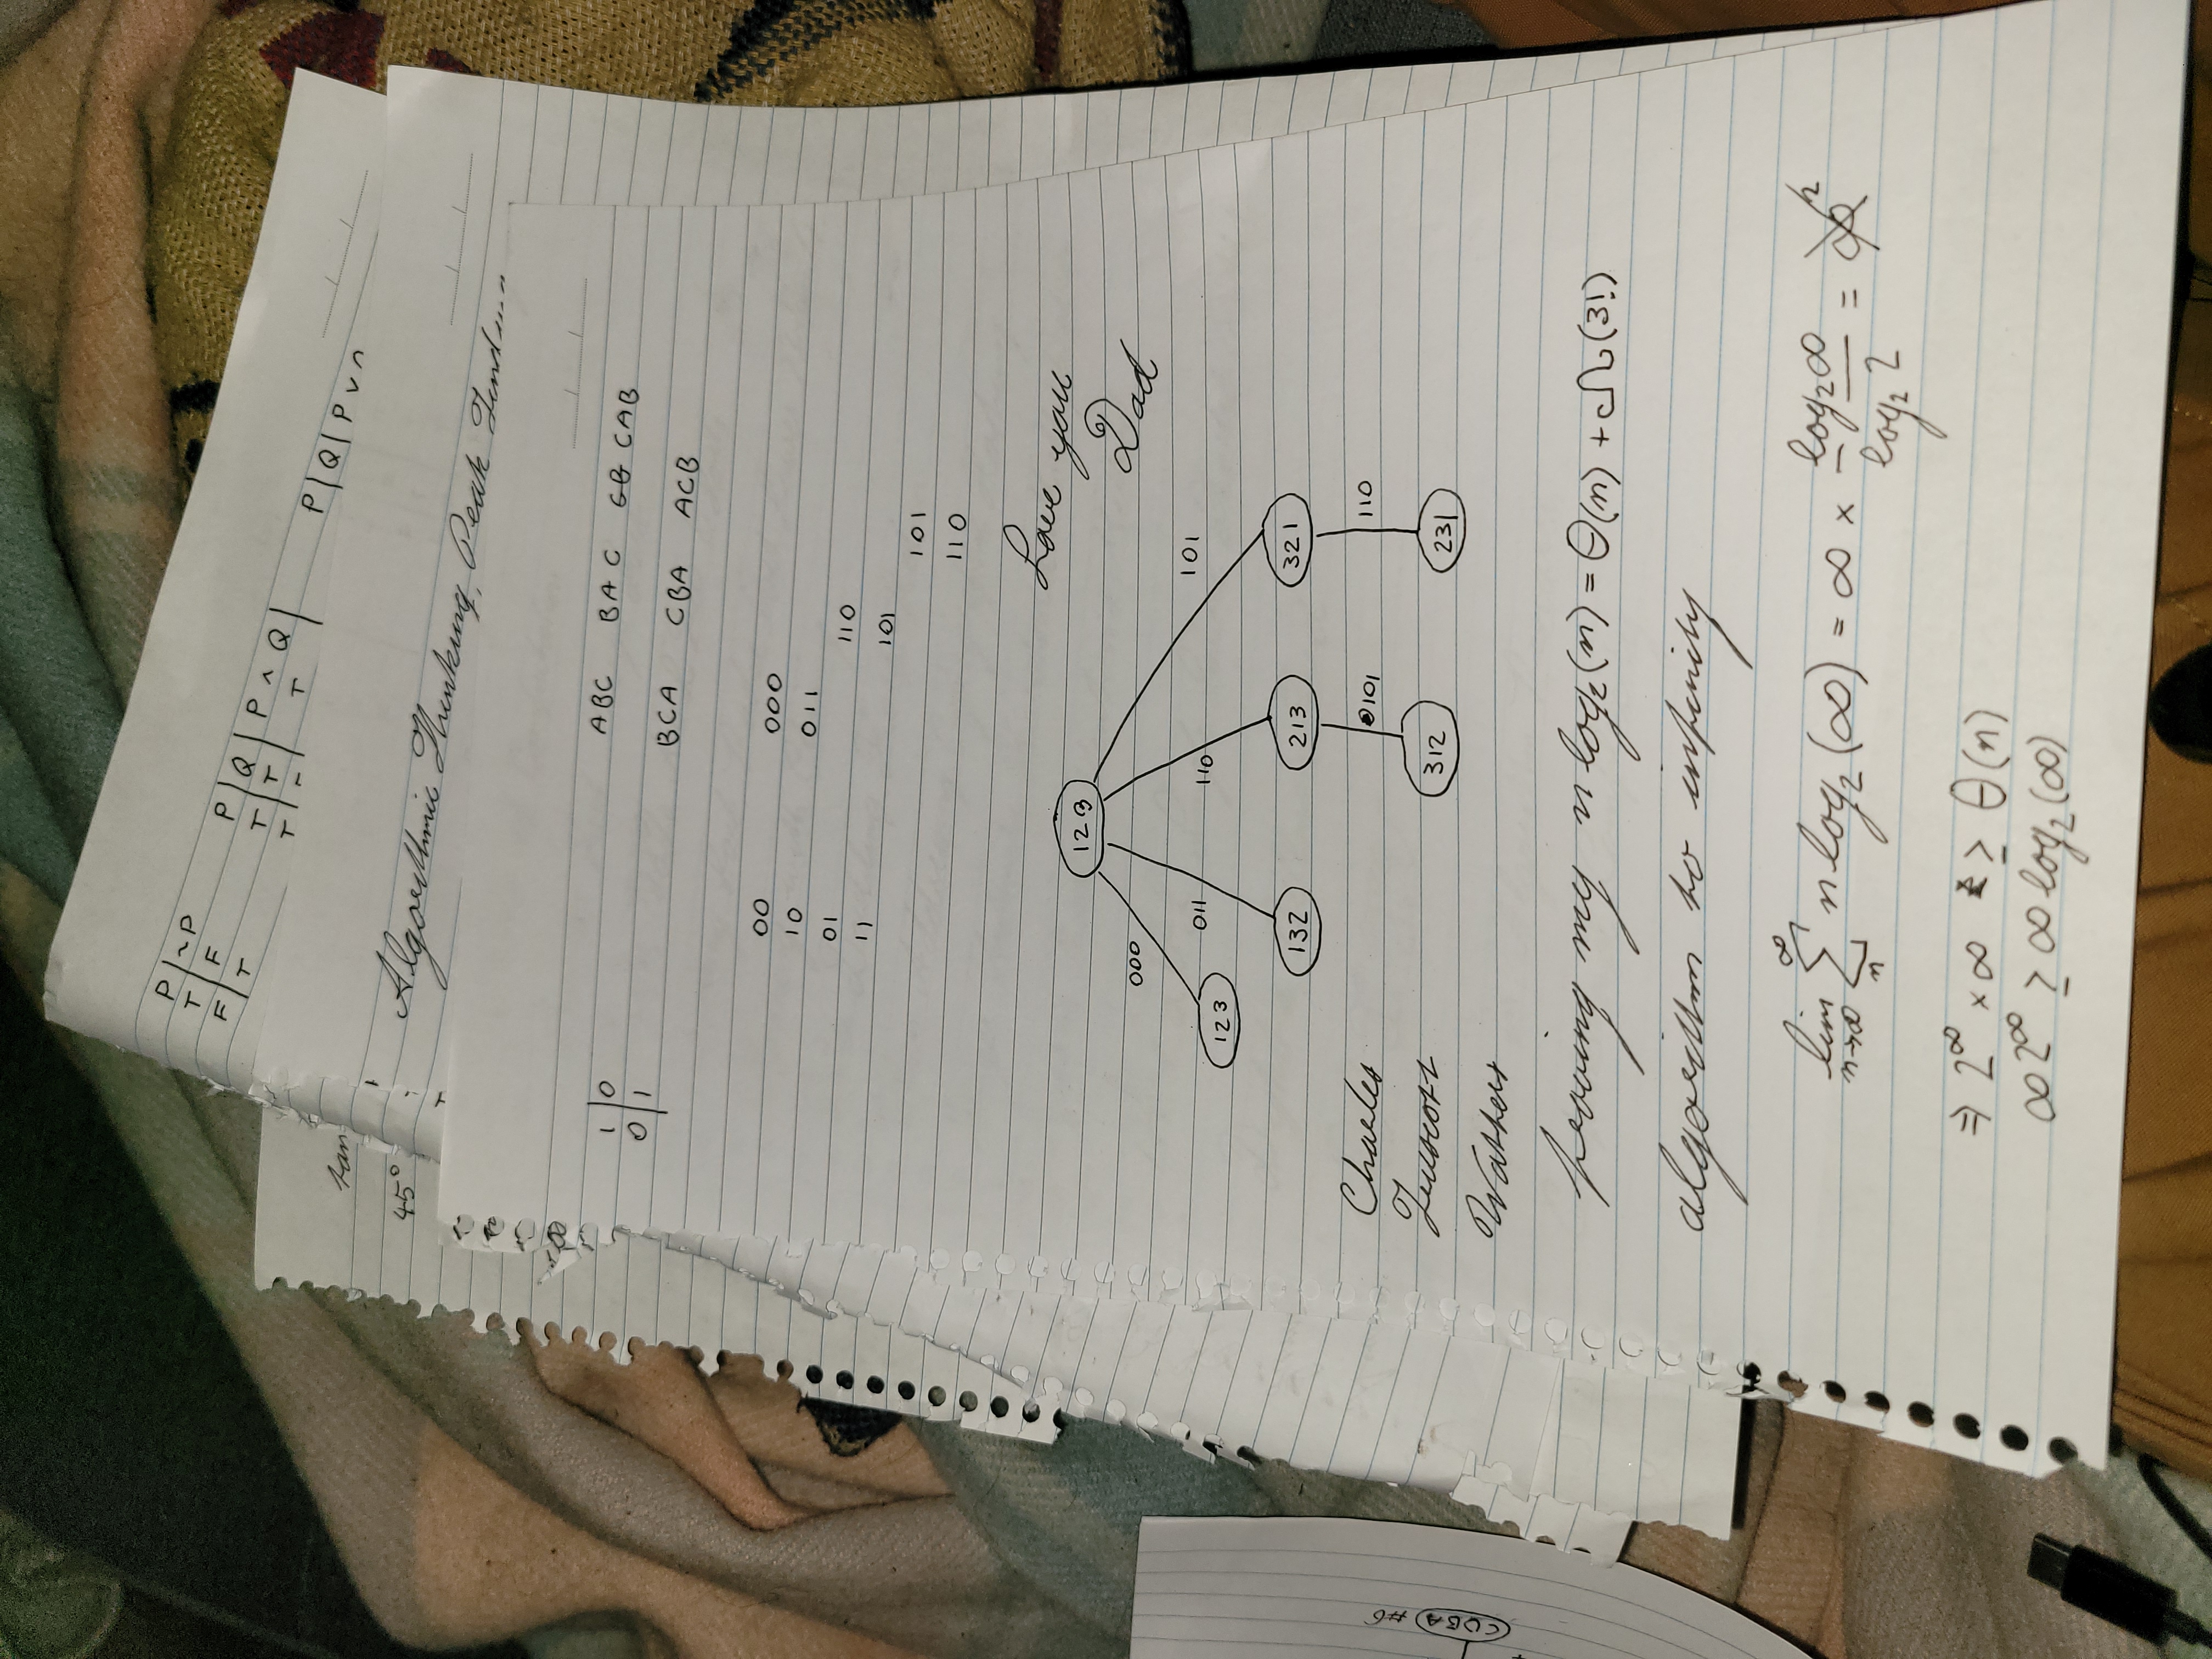 P | ~P
T | F
F | T
P | Q | P ∧ Q |
T | T | T
T
P | Q | P ∨
tan
45°
Algorithmic Thinking, Peak
1 | 0
0 | 1
ABC BAC CAB
BCA CBA ACB
00 000
10 011
01 110
11 101
101
110
Love you
Dad
123
000
011
110
101
123
132
213
321
101
110
312
231
Charles
Truscott
Watters
CDBA #6
proving my n log₂(n) = Θ(n) + Ω(3!)
algorithm to infinity
lim n→∞ ∑ n ∞ n log₂(∞) = ∞ × log₂∞ / log₂2 = ∞²
⇒ 2^∞ × ∞ ≥ Θ(n)
∞2^∞ ≥ ∞ log₂(∞)